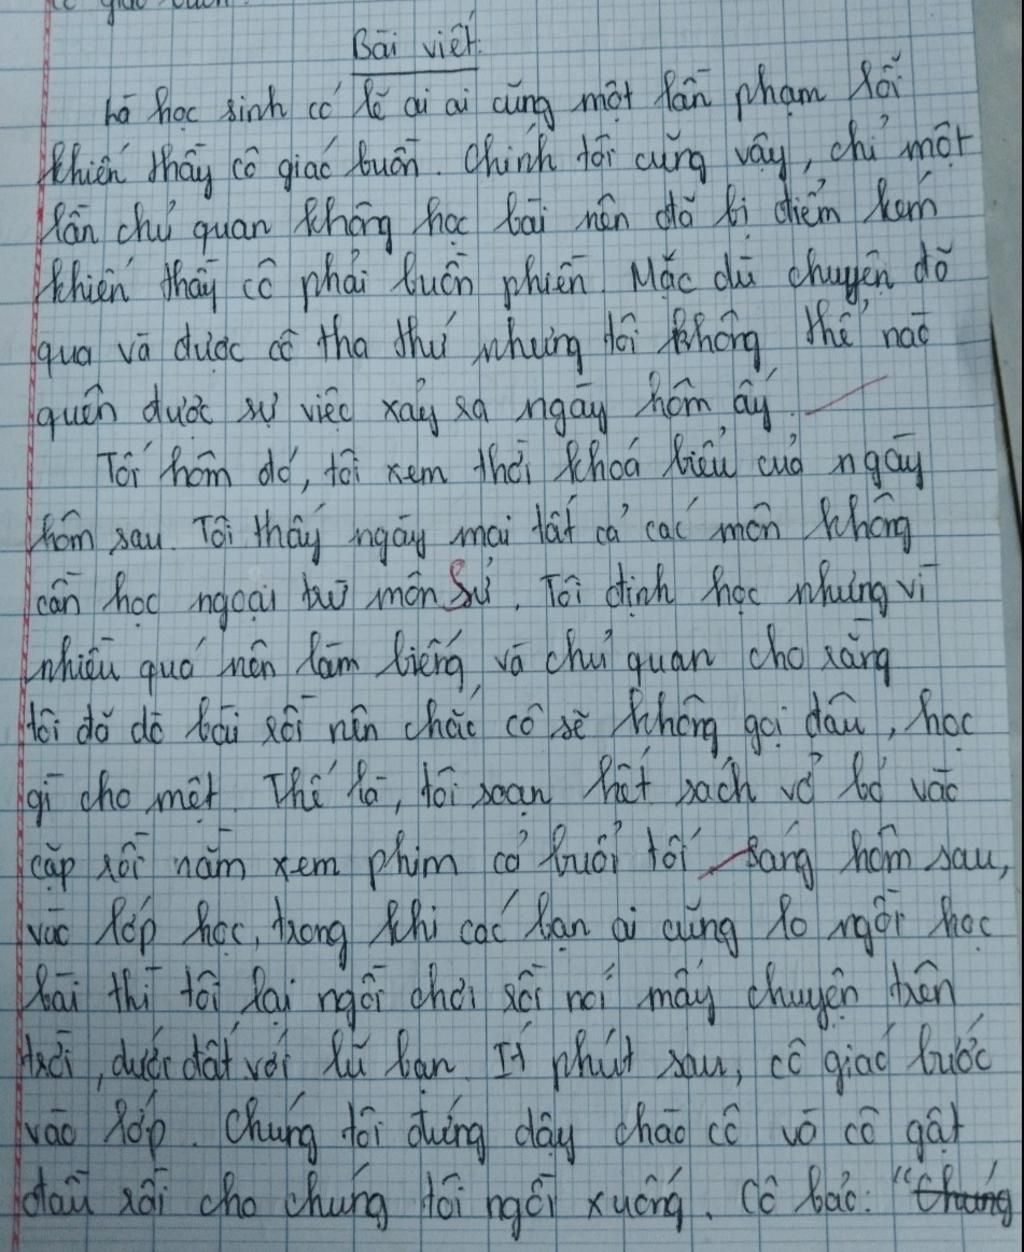 Bài viết:
Là học sinh có lẽ ai ai cũng một lần phạm lỗi
khiến thầy cô giáo buồn. Chính tôi cũng vậy, chỉ một
lần chủ quan không học bài nên đã bị điểm kém
khiến thầy cô phải buồn phiền. Mặc dù chuyện đã
qua và được cô tha thứ nhưng tôi không thể nào
quên được sự việc xảy ra ngày hôm ấy.
Tối hôm đó, tôi xem thời khoá biểu của ngày
hôm sau. Tôi thấy ngày mai tất cả các môn không
cần học ngoại trừ môn Sử. Tôi định học nhưng vì
nhiều quá nên làm biếng, và chủ quan cho rằng
tôi đã dò bài rồi nên chắc cô sẽ không gọi đâu, học
gì cho mệt. Thế là, tôi soạn hết sách vở bỏ vào
cặp rồi nằm xem phim cả buổi tối. Sáng hôm sau,
vào lớp học, trong khi các bạn ai cũng lo ngồi học
bài thì tôi lại ngồi chơi rồi nói mấy chuyện trên
trời, dưới đất với lũ bạn. Ít phút sau, cô giáo bước
vào lớp. Chúng tôi đứng dậy chào cô và cô gật
đầu rồi cho chúng tôi ngồi xuống. Cô bảo: "